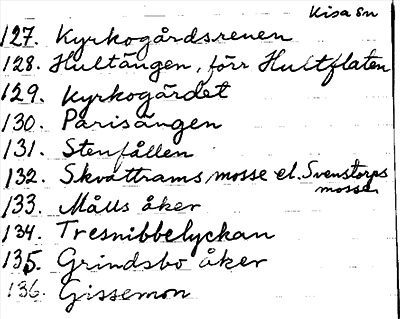 Kisa sn
127. Kyrkogårdsrenen
128. Hultängen, förr Hultflaten
129. Kyrkogärdet
130. Parisängen
131. Stenfållen
132. Skvattrams mosse el. Svenstorps
mosse
133. Målls åker
134. Tresnibbelyckan
135. Grindsbo åker
136. Gissemon